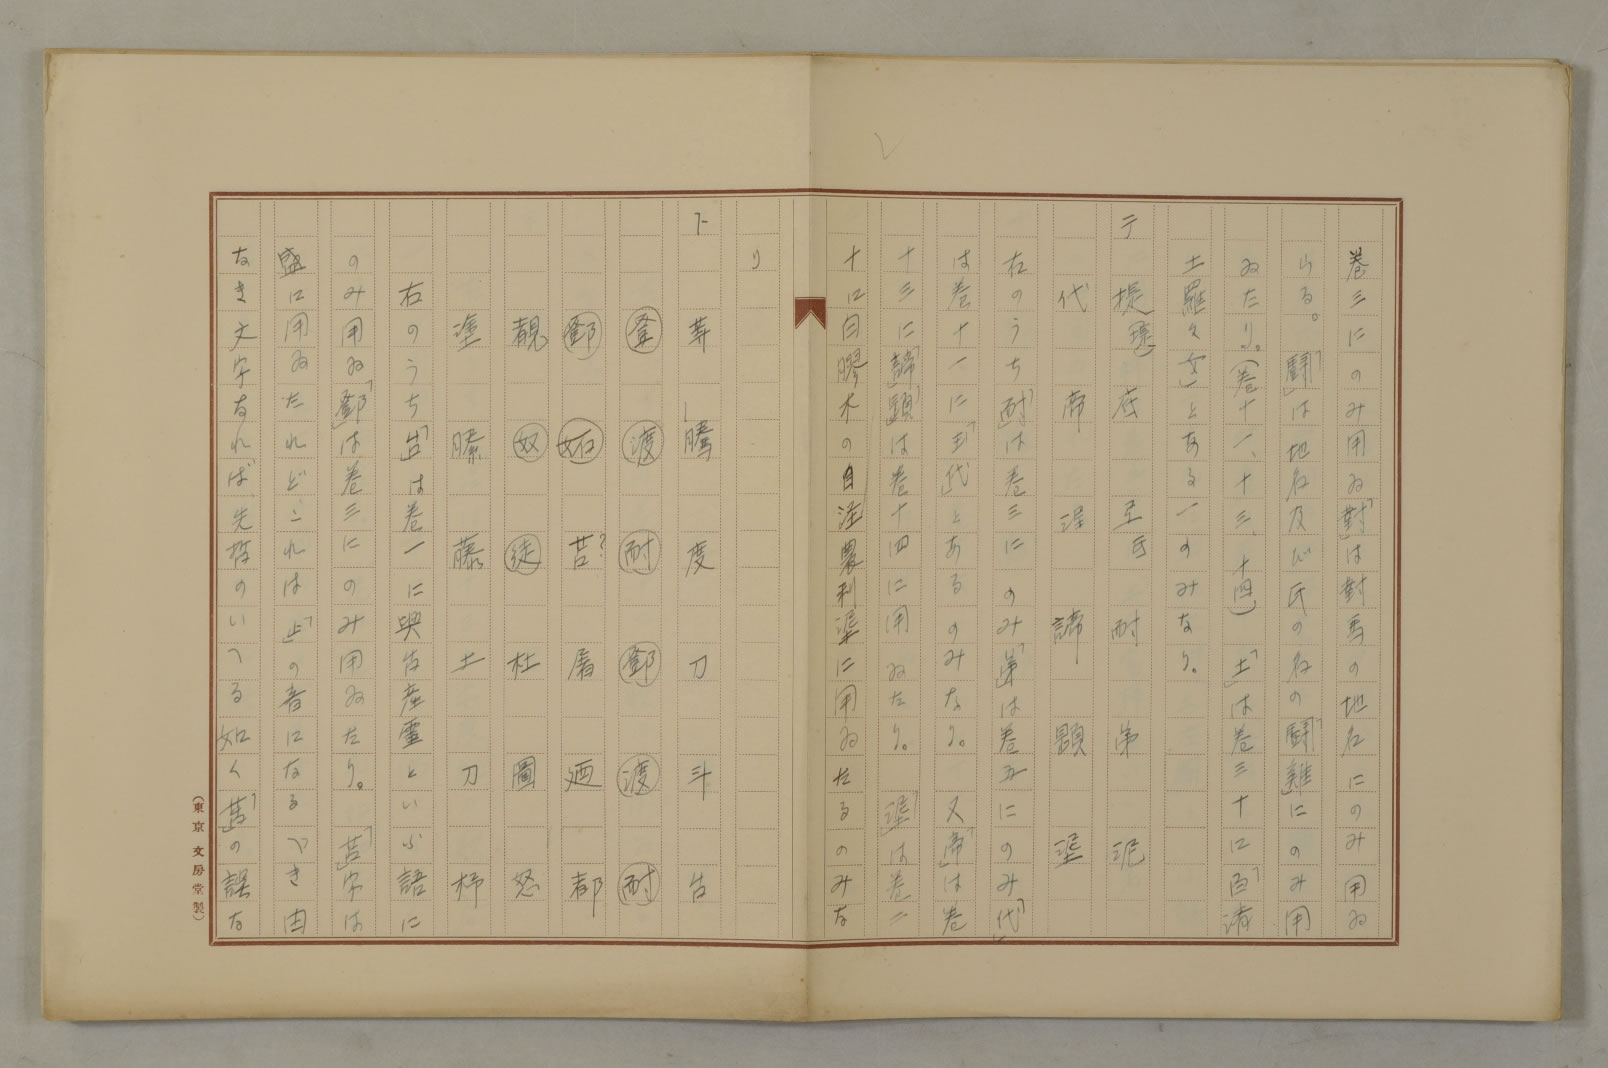 巻三にのみ用ゐ「對」は對馬の地名にのみ用ゐ
らる。「鬪」は地名及び氏の名の「鬪雞」にのみ用
ゐたり。(巻十一、十三、十四)「土」は巻三十に「百濟
土羅々女」とある一のみなり。
テ
提 底 氐 耐 弟 泥
代 帝 涅 諦 題 埿
右のうち「耐」は巻三にのみ「弟」は巻五にのみ「代」
は巻十一に「代」とあるのみなり。又「帝」は巻
十三に「諦」「題」は巻十四に用ゐたり。「埿」は巻二
十に白膠木の自注農利埿に用ゐたるのみな
り
ト
苔 騰 度 刀 斗 吉
登 渡 耐 鄧 渡 耐
鄧 妬 苫? 屠 廼 都
覩 奴 徒 杜 圖 怒
塗 縢 藤 土 刀 杼
右のうち「苫」は巻一に興台産靈といふ語に
のみ用ゐ「鄧」は巻三にのみ用ゐたり。「苫」字は
盛に用ゐたれどこれは「上」の音になるべき由
なき文字なれば先哲のいへる如く「苔」の誤な
(東京 文房堂製)